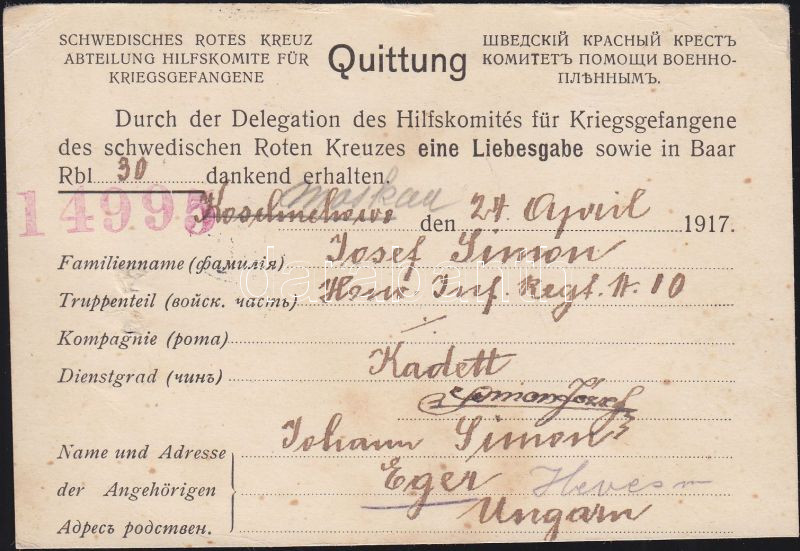 SCHWEDISCHES ROTES KREUZ
ABTEILUNG HILFSKOMITE FÜR
KRIEGSGEFANGENE
Quittung
ШВЕДСКІЙ КРАСНЫЙ КРЕСТЪ
КОМИТЕТЪ ПОМОЩИ ВОЕННО-
ПЛѢННЫМЪ.
Durch der Delegation des Hilfskomités für Kriegsgefangene
des schwedischen Roten Kreuzes eine Liebesgabe sowie in Baar
Rbl 30 dankend erhalten.
14995
Moskau
den 24 April 1917.
Familienname (фамилія) Josef Simon
Truppenteil (войск. часть) Hon. Inf. Regt. N. 10
Kompagnie (рота)
Dienstgrad (чинъ) Kadett
Simon József
Name und Adresse Johann Simon
der Angehörigen Eger Heves m
Адресъ родствен. Ungarn
darabanth